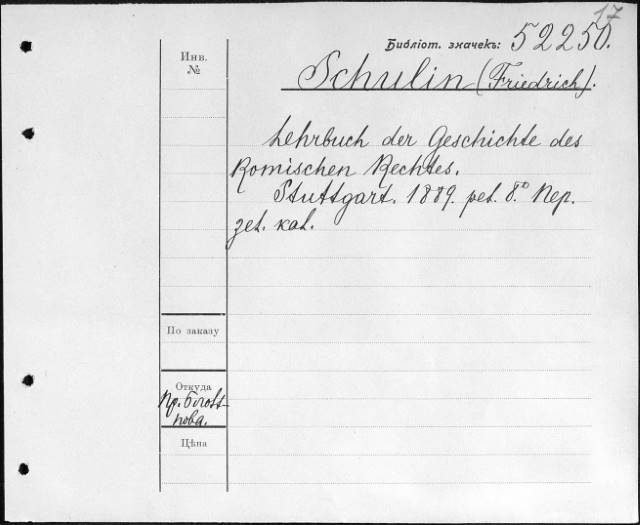 17
Библіот. значекъ: 52250.
Инв.
№
Schulin (Friedrich).
Lehrbuch der Geschichte des
Römischen Rechtes.
Stuttgart. 1889. pet. 8.° Пер.
kal.
По заказу
Откуда
Пр.
Цѣна